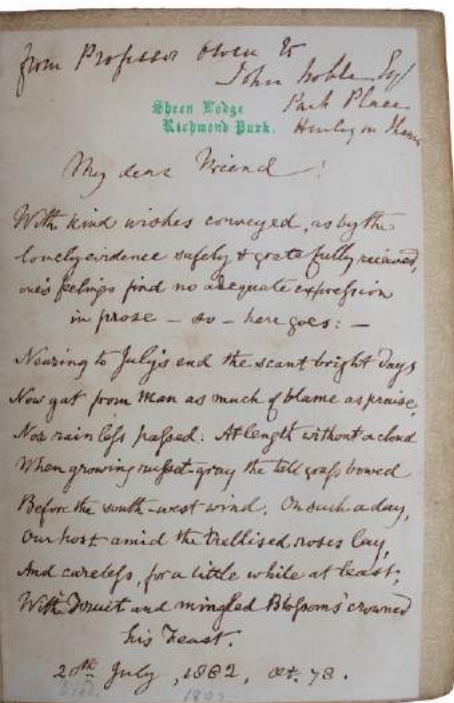 from Professor Owen to
John Noble Esq
Park Place
Henley on Thames
Sheen Lodge
Richmond Park.
My dear Friend!
With kind wishes conveyed, as by the
lovely evidence safely & gratefully received,
one's feelings find no adequate expression
in prose — so — here goes: —
Nearing to July's end the scant bright days
Now gat from Man as much of blame as praise,
Nor rainless passed. At length without a cloud
When growing russet-gray the tall grass bowed
Before the south-west wind. On such a day,
Our host amid the trellised roses lay,
And careless, for a little while at least,
With Fruit and mingled Blossoms' crowned
his Feast.
20th July, 1882, æt. 78.